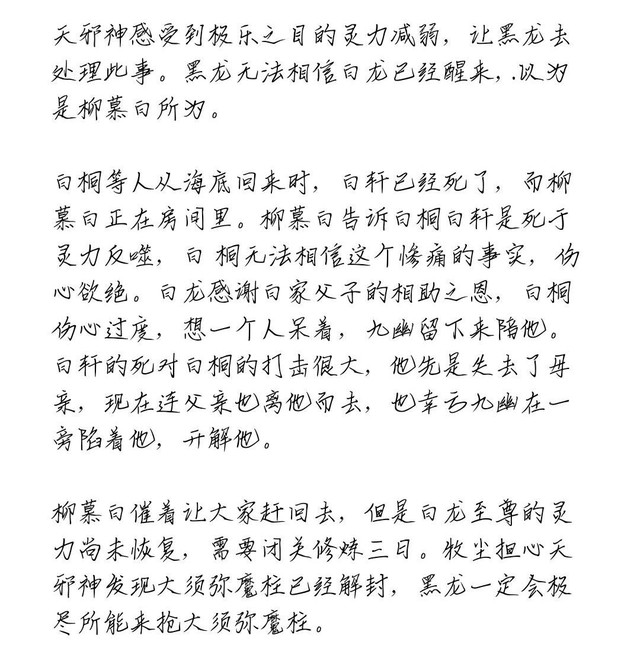 天邪神感受到极乐之目的灵力减弱，让黑龙去
处理此事。黑龙无法相信白龙已经醒来，.以为
是柳慕白所为。
白桐等人从海底回来时，白轩已经死了，而柳
慕白正在房间里。柳慕白告诉白桐白轩是死于
灵力反噬，白 桐无法相信这个惨痛的事实，伤
心欲绝。白龙感谢白家父子的相助之恩，白桐
伤心过度，想一个人呆着，九幽留下来陪他。
白轩的死对白桐的打击很大，他先是失去了母
亲，现在连父亲也离他而去，也幸亏九幽在一
旁陪着他，开解他。
柳慕白催着让大家赶回去，但是白龙至尊的灵
力尚未恢复，需要闭关修炼三日。牧尘担心天
邪神发现大须弥魔柱已经解封，黑龙一定会极
尽所能来抢大须弥魔柱。